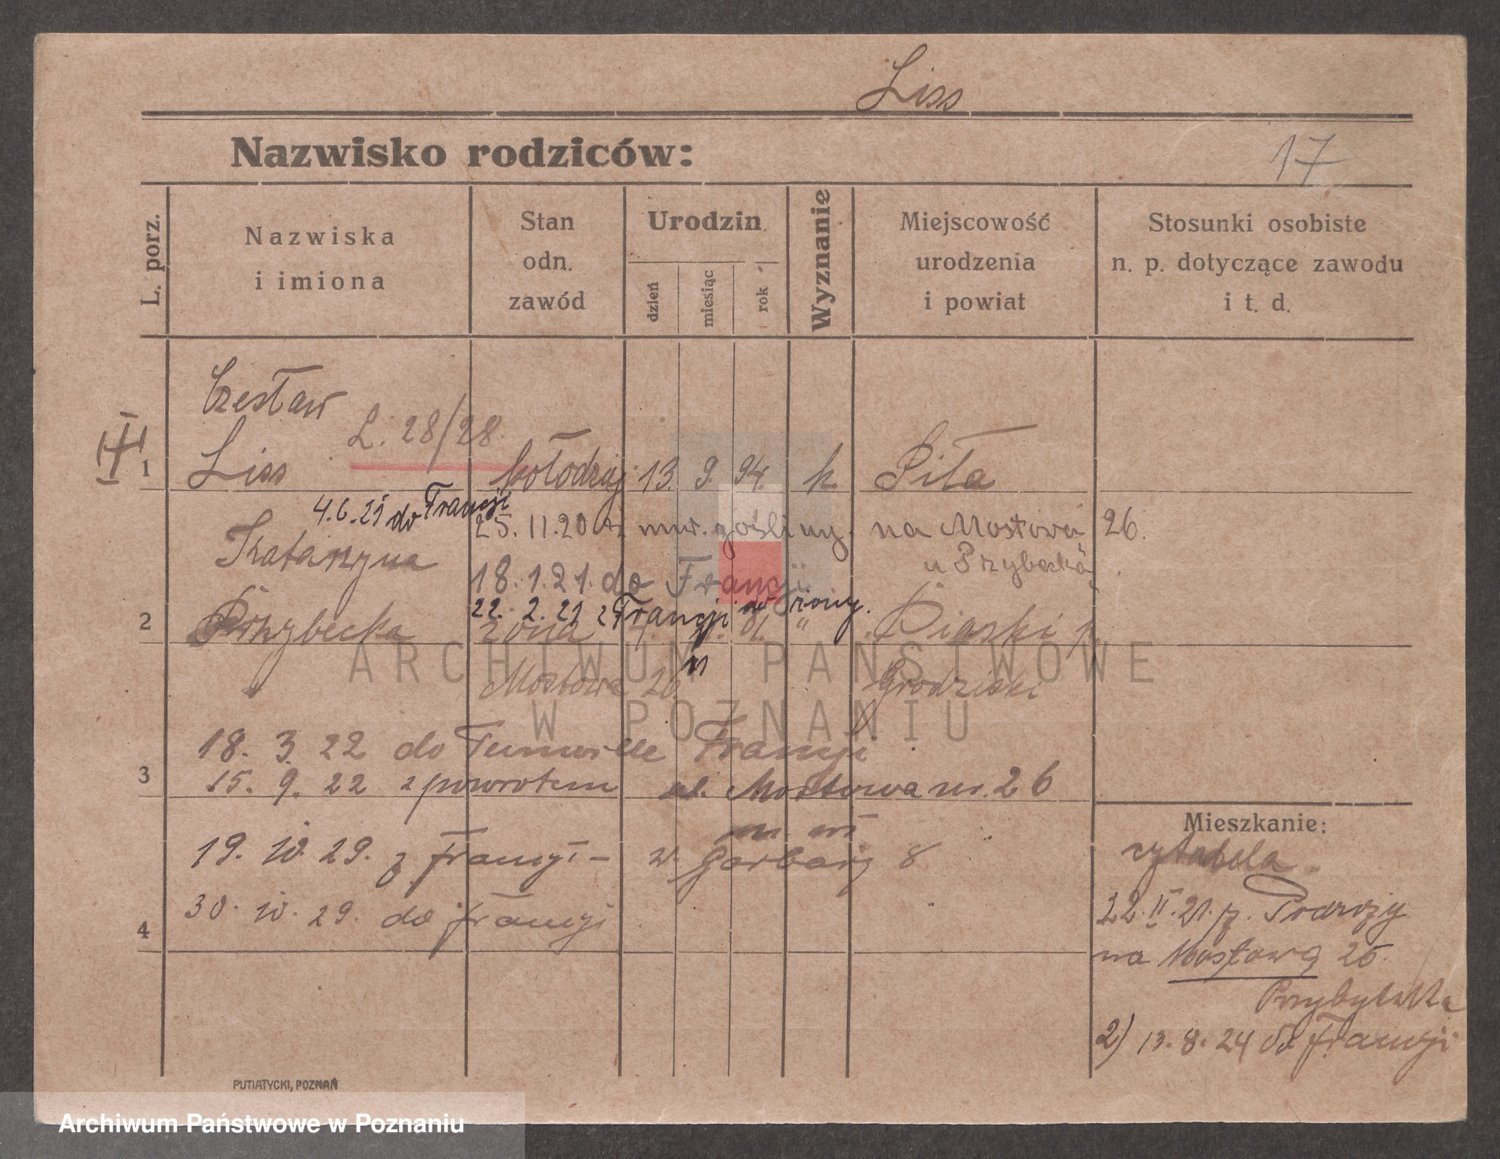 Liss
Nazwisko rodziców:
17
L. porz.
Nazwiska
i imiona
Stan
odn.
zawód
Urodzin
dzień
miesiąc
rok
Wyznanie
Miejscowość
urodzenia
i powiat
Stosunki osobiste
n. p. dotyczące zawodu
i t. d.
Czesław
L. 28/28.
1 Liss kołodziej 13 9. 94. k. Piła
4.6.25 do Francji
25.11.20 na Mostowa 26.
Katarzyna u Przybecka
18.1.21. do Francji
22. 2. 21 z Francji do żony.
2 Przybecka żona " Piaski p.
ARCHIWUM PAŃSTWOWE
Mostowa 26 Grodziski
W POZNANIU
18. 3. 22 do Francji
3 15. 9. 22 z powrotem ul. Mostowa nr. 26
Mieszkanie:
19. IV. 29. z Francji – w. Garbary 8
22.II.21. p.
30. IV. 29. do Francji
4
na Mostową 26.
2) 13. 8. 24 do Francji
PUTIATYCKI, POZNAŃ
Archiwum Państwowe w Poznaniu